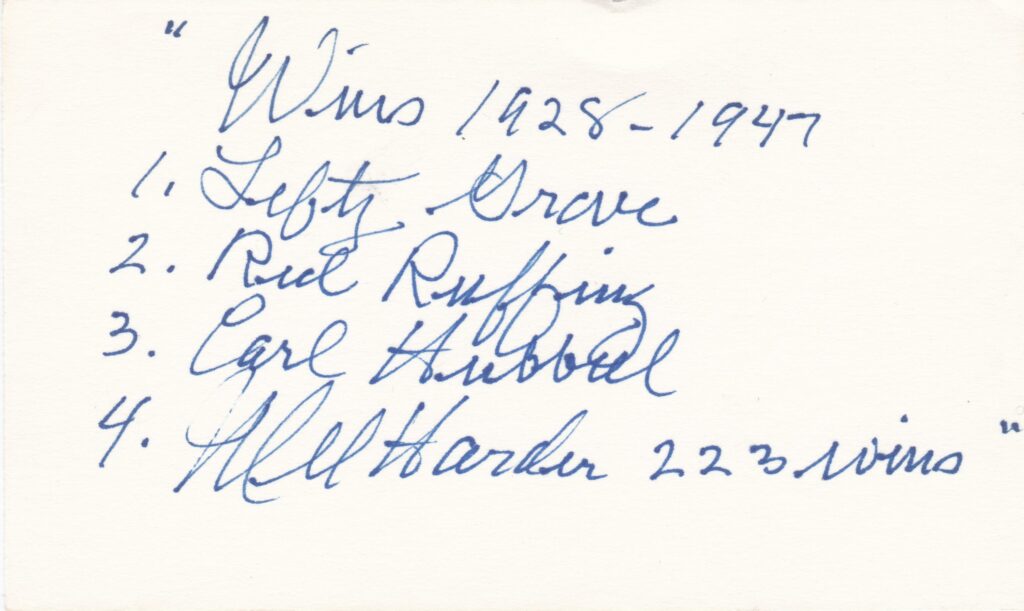 "Wins 1928-1947
1. Lefty Grove
2. Red Ruffing
3. Carl Hubbell
4. Mel Harder 223 wins"